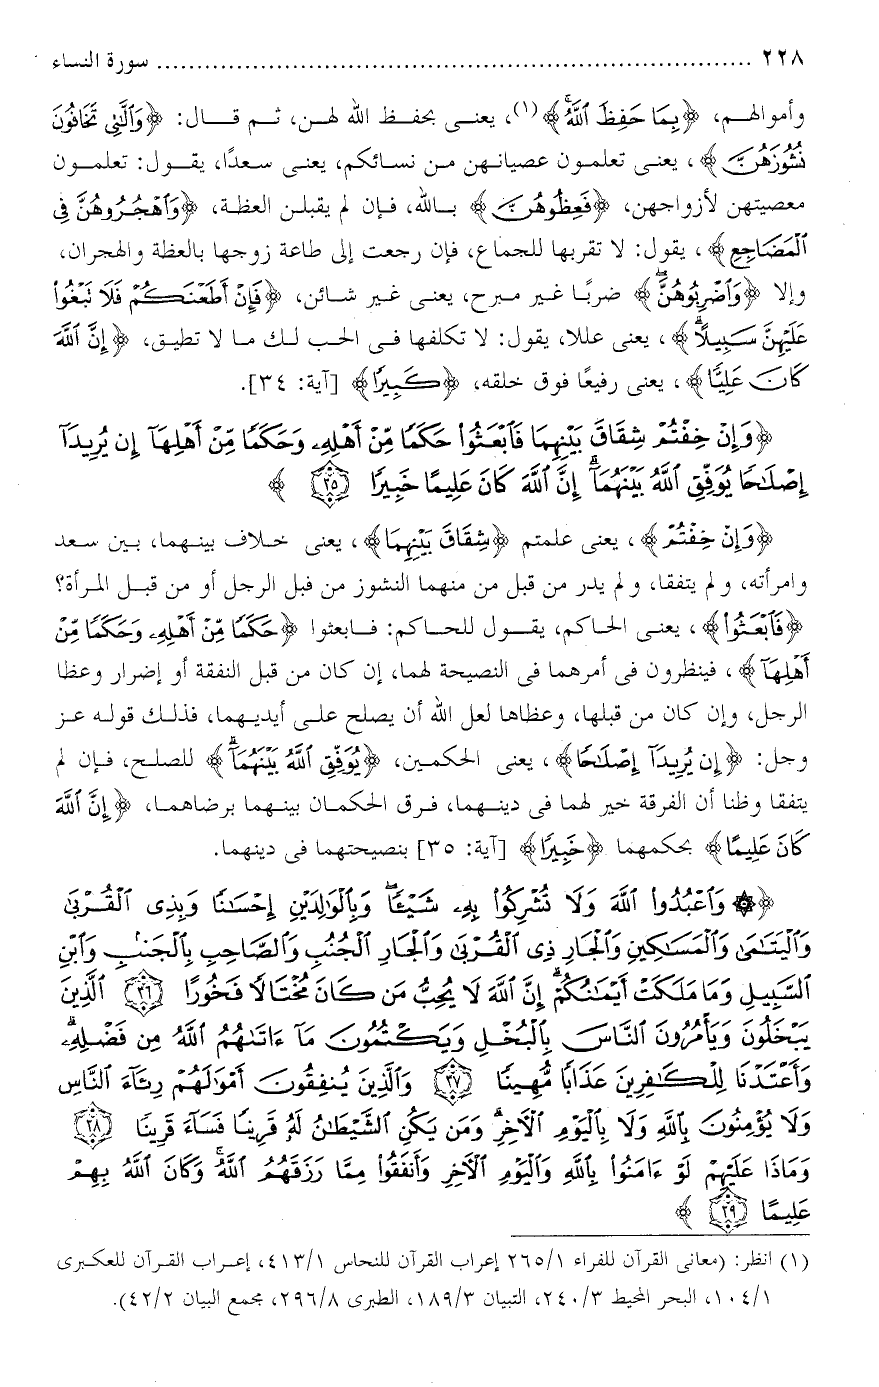 ٢٢٨ ........................................................................... سورة النساء
وأموالهم، ﴿بِمَا حَفِظَ ٱللَّهُ﴾(١)، يعنى بحفظ الله لهن، ثم قال: ﴿وَٱلَّـٰتِى تَخَافُونَ
نُشُوزَهُنَّ﴾، يعنى تعلمون عصيانهن من نسائكم، يعنى سعدًا، يقول: تعلمون
معصيتهن لأزواجهن، ﴿فَعِظُوهُنَّ﴾ بالله، فإن لم يقبلن العظة، ﴿وَٱهْجُرُوهُنَّ فِى
ٱلْمَضَاجِعِ﴾، يقول: لا تقربها للجماع، فإن رجعت إلى طاعة زوجها بالعظة والهجران،
وإلا ﴿وَٱضْرِبُوهُنَّ﴾ ضربًا غير مبرح، يعنى غير شائن، ﴿فَإِنْ أَطَعْنَكُمْ فَلَا تَبْغُوا۟
عَلَيْهِنَّ سَبِيلًا﴾، يعنى عللا، يقول: لا تكلفها فى الحب لك ما لا تطيق، ﴿إِنَّ ٱللَّهَ
كَانَ عَلِيًّا﴾، يعنى رفيعًا فوق خلقه، ﴿كَبِيرًا﴾ [آية: ٣٤].
﴿وَإِنْ خِفْتُمْ شِقَاقَ بَيْنِهِمَا فَٱبْعَثُوا۟ حَكَمًا مِّنْ أَهْلِهِۦ وَحَكَمًا مِّنْ أَهْلِهَآ إِن يُرِيدَآ
إِصْلَـٰحًا يُوَفِّقِ ٱللَّهُ بَيْنَهُمَآ ۗ إِنَّ ٱللَّهَ كَانَ عَلِيمًا خَبِيرًا ٣٥﴾
﴿وَإِنْ خِفْتُمْ﴾، يعنى علمتم ﴿شِقَاقَ بَيْنِهِمَا﴾، يعنى خلاف بينهما، بين سعد
وامرأته، ولم يتفقا، ولم يدر من قبل من منهما النشوز من قبل الرجل أو من قبل المرأة؟
﴿فَٱبْعَثُوا۟﴾، يعنى الحاكم، يقول للحاكم: فابعثوا ﴿حَكَمًا مِّنْ أَهْلِهِۦ وَحَكَمًا مِّنْ
أَهْلِهَآ﴾، فينظرون فى أمرهما فى النصيحة لهما، إن كان من قبل النفقة أو إضرار وعظا
الرجل، وإن كان من قبلها، وعظاها لعل الله أن يصلح على أيديهما، فذلك قوله عز
وجل: ﴿إِن يُرِيدَآ إِصْلَـٰحًا﴾، يعنى الحكمين، ﴿يُوَفِّقِ ٱللَّهُ بَيْنَهُمَآ﴾ للصلح، فإن لم
يتفقا وظنا أن الفرقة خير لهما فى دينهما، فرق الحكمان بينهما برضاهما، ﴿إِنَّ ٱللَّهَ
كَانَ عَلِيمًا﴾ بحكمهما ﴿خَبِيرًا﴾ [آية: ٣٥] بنصيحتهما فى دينهما.
﴿۞ وَٱعْبُدُوا۟ ٱللَّهَ وَلَا تُشْرِكُوا۟ بِهِۦ شَيْـًٔا ۖ وَبِٱلْوَٰلِدَيْنِ إِحْسَـٰنًا وَبِذِى ٱلْقُرْبَىٰ
وَٱلْيَتَـٰمَىٰ وَٱلْمَسَـٰكِينِ وَٱلْجَارِ ذِى ٱلْقُرْبَىٰ وَٱلْجَارِ ٱلْجُنُبِ وَٱلصَّاحِبِ بِٱلْجَنۢبِ وَٱبْنِ
ٱلسَّبِيلِ وَمَا مَلَكَتْ أَيْمَـٰنُكُمْ ۗ إِنَّ ٱللَّهَ لَا يُحِبُّ مَن كَانَ مُخْتَالًا فَخُورًا ٣٦ ٱلَّذِينَ
يَبْخَلُونَ وَيَأْمُرُونَ ٱلنَّاسَ بِٱلْبُخْلِ وَيَكْتُمُونَ مَآ ءَاتَىٰهُمُ ٱللَّهُ مِن فَضْلِهِۦ ۗ
وَأَعْتَدْنَا لِلْكَـٰفِرِينَ عَذَابًا مُّهِينًا ٣٧ وَٱلَّذِينَ يُنفِقُونَ أَمْوَٰلَهُمْ رِئَآءَ ٱلنَّاسِ
وَلَا يُؤْمِنُونَ بِٱللَّهِ وَلَا بِٱلْيَوْمِ ٱلْـَٔاخِرِ ۗ وَمَن يَكُنِ ٱلشَّيْطَـٰنُ لَهُۥ قَرِينًا فَسَآءَ قَرِينًا ٣٨
وَمَاذَا عَلَيْهِمْ لَوْ ءَامَنُوا۟ بِٱللَّهِ وَٱلْيَوْمِ ٱلْـَٔاخِرِ وَأَنفَقُوا۟ مِمَّا رَزَقَهُمُ ٱللَّهُ ۚ وَكَانَ ٱللَّهُ بِهِمْ
عَلِيمًا ٣٩﴾
(١) انظر: (معانى القرآن للفراء ٢٦٥/١ إعراب القرآن للنحاس ٤١٣/١، إعراب القرآن للعكبرى
١٠٤/١، البحر المحيط ٢٤٠/٣، التبيان ١٨٩/٣، الطبرى ٢٩٦/٨، مجمع البيان ٤٢/٢).